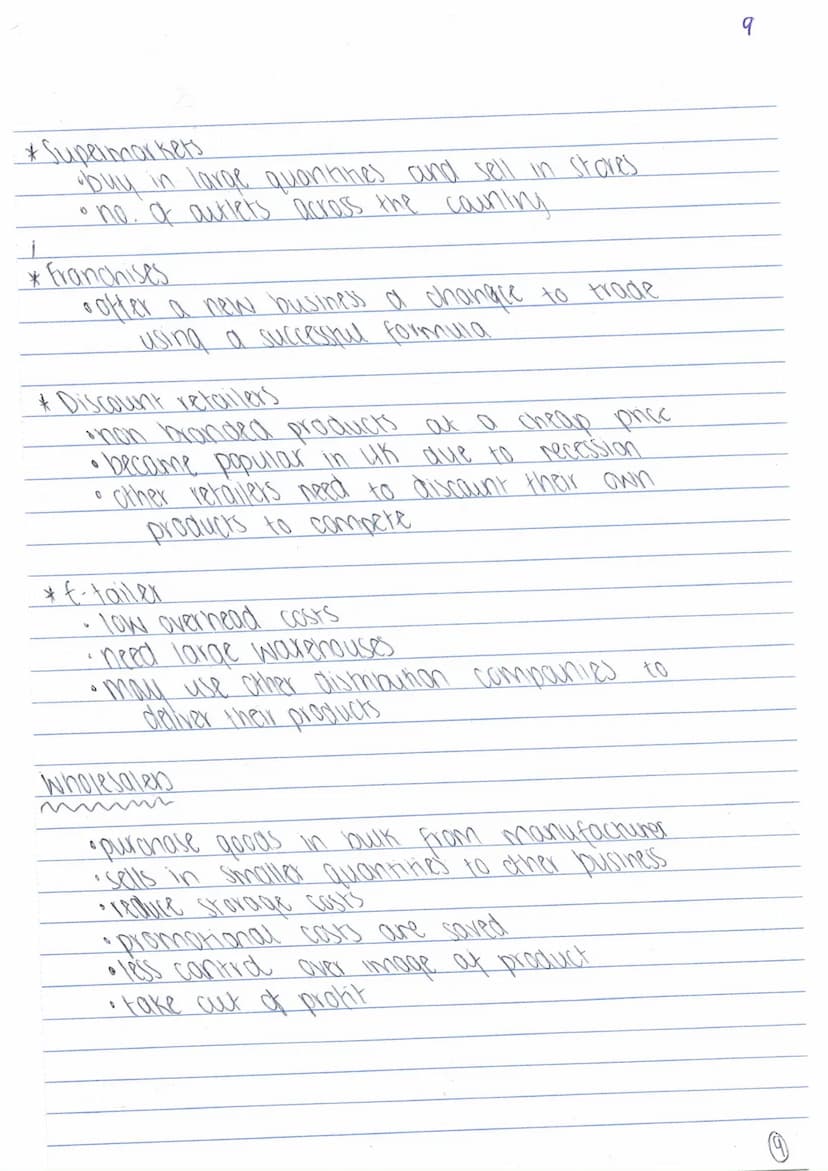 9
* Supermarkets
• buy in large quantities and sell in stores
• no. of outlets across the country
i
* Franchises
• offer a new business a change to trade
using a successful formula
* Discount retailers
• non branded products at a cheap price
• become popular in UK due to recession
• other retailers need to discount their own
products to compete
* E-tailer
• low overhead costs
• need large warehouses
• may use other distribution companies to
deliver their products
Wholesalers
• purchase goods in bulk from manufacturer
• sells in smaller quantities to other business
• reduce storage costs
• promotional costs are saved
• less control over image of product
• take cut of profit
9